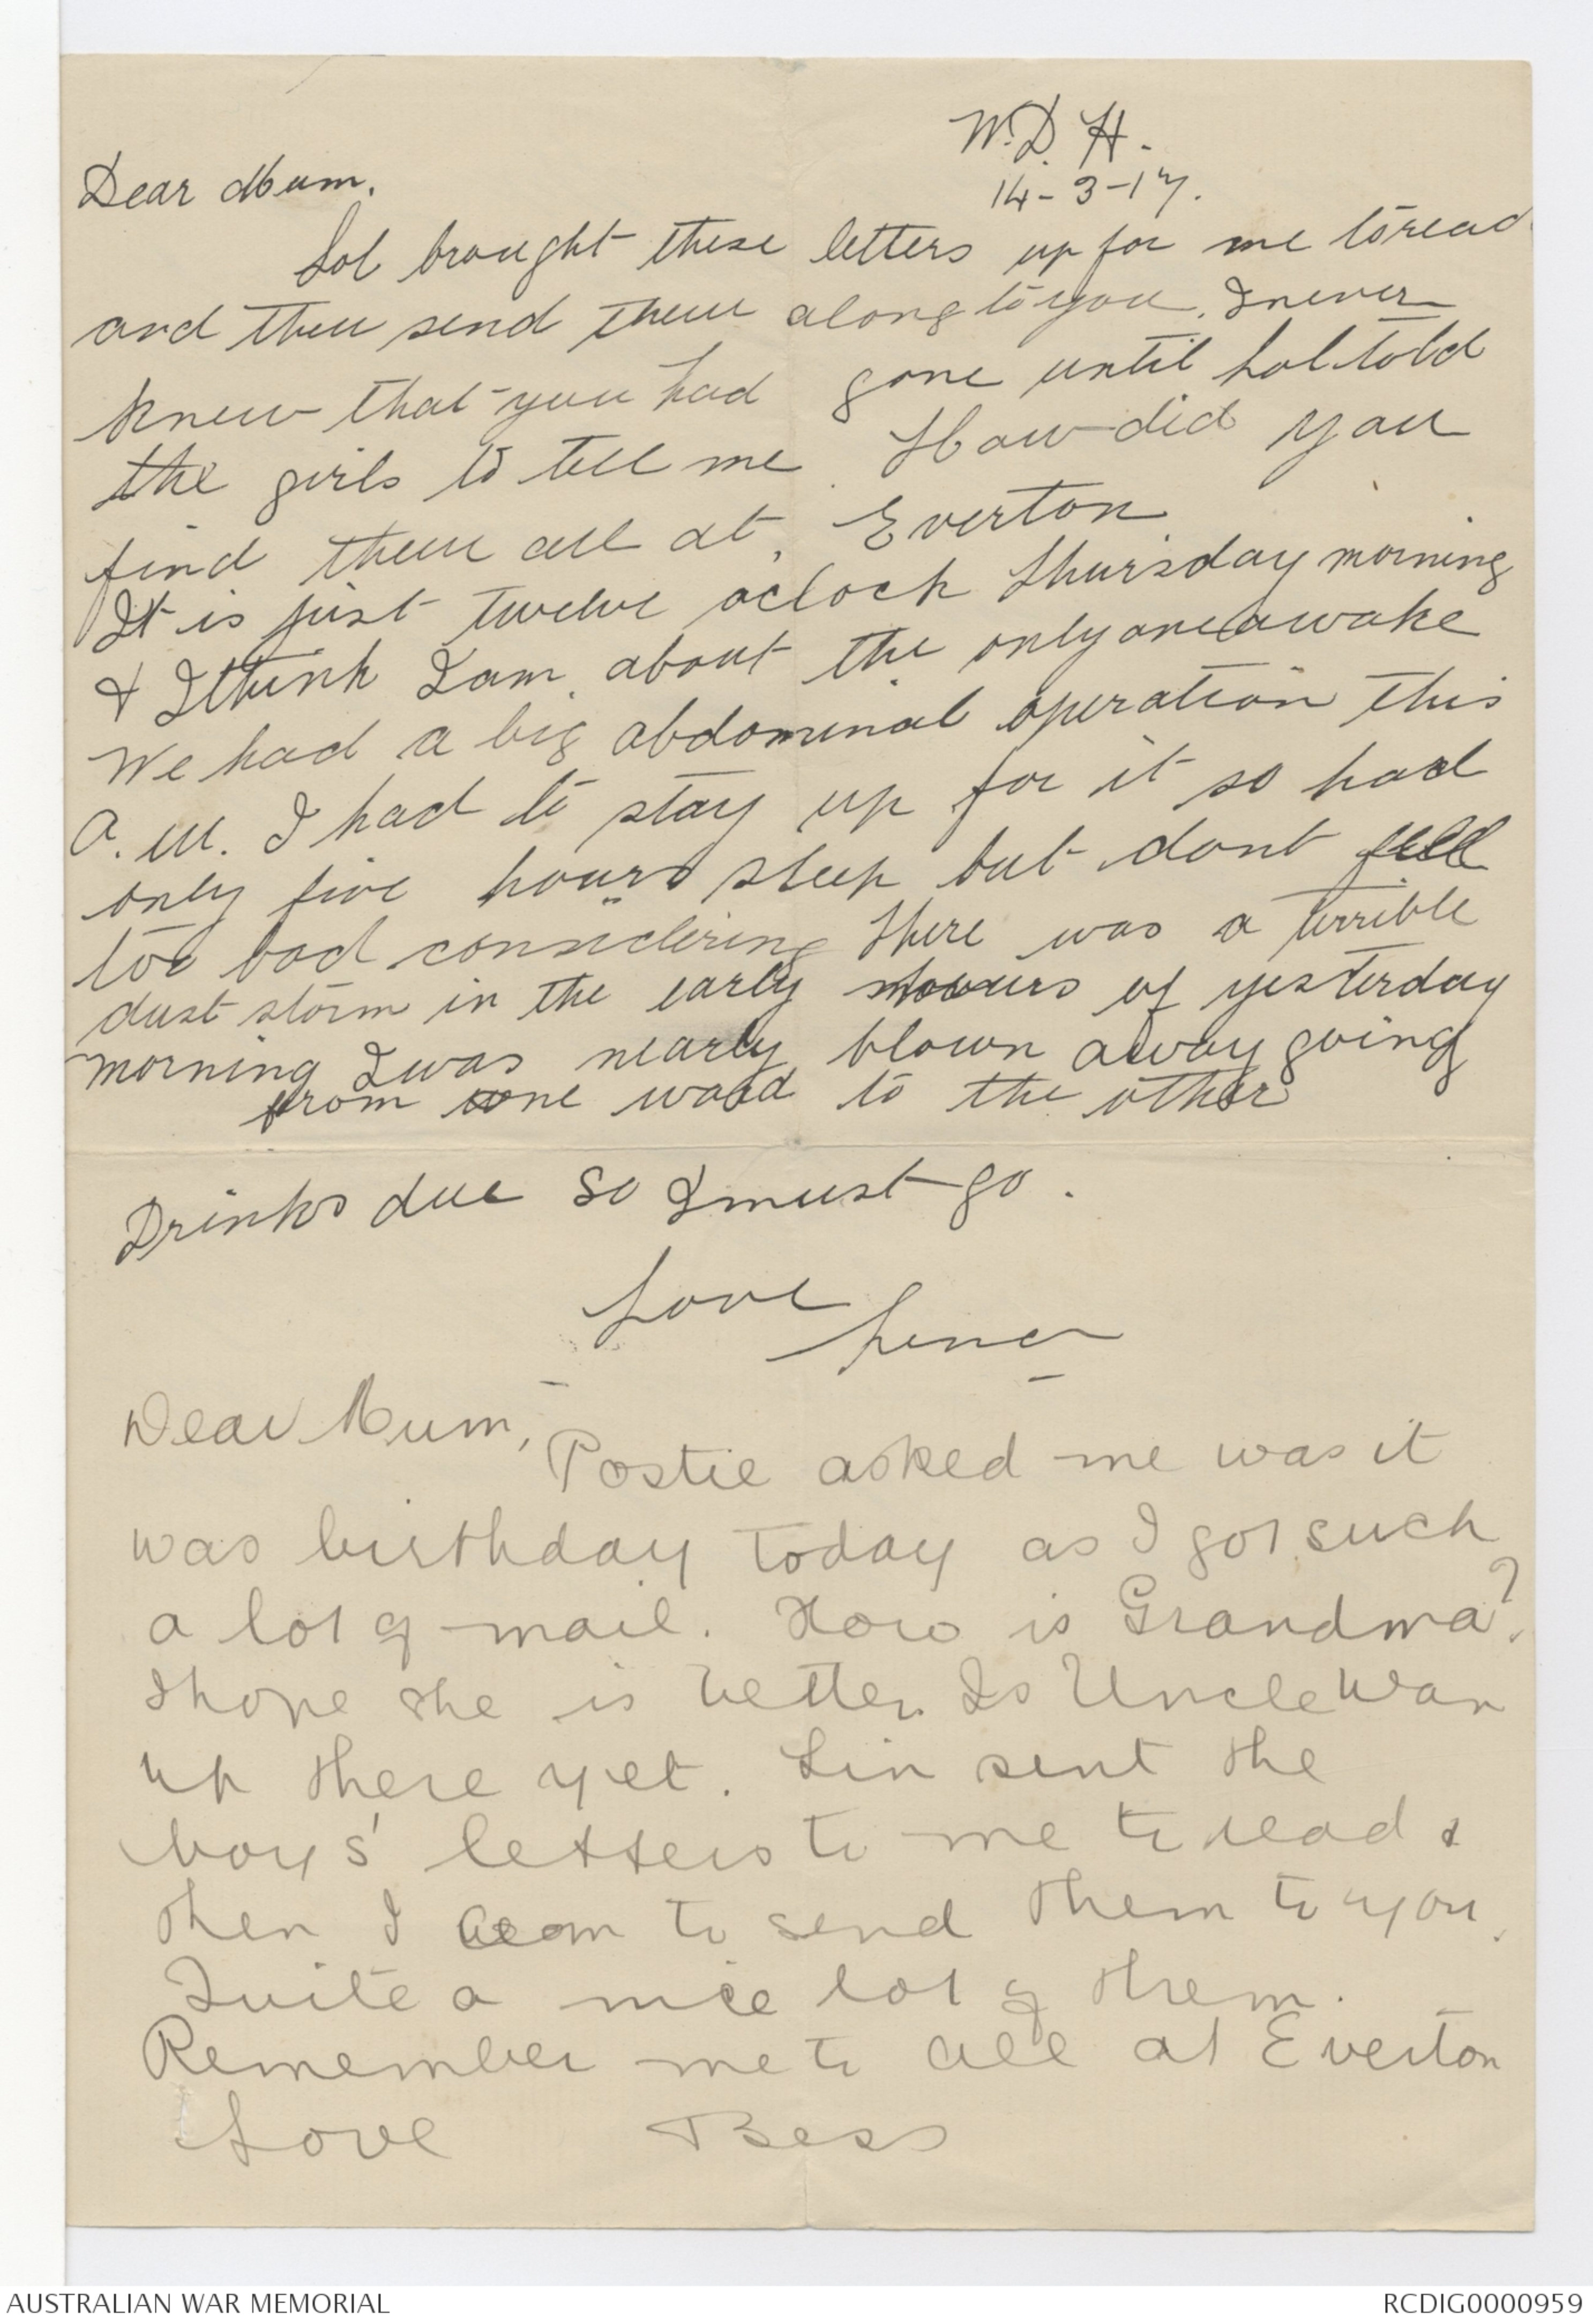 W.D.H.
14-3-17.
Dear Mum,
Lol brought these letters up for me to read
and then send them along to you. I never
knew that you had gone until Lol told
the girls to tell me. How did you
find them all at Everton
It is just twelve o'clock Thursday morning
& I think I am about the only one awake
We had a big abdominal operation this
a.m. I had to stay up for it so had
only five hours sleep but dont feel
too bad considering there was a terrible
dust storm in the early hours of yesterday
morning I was nearly blown away going
from one ward to the other
Drinks due so I must go.
Love
Dear Mum,
Postie asked me was it
was birthday today as I got such
a lot of mail. How is Grandma?
I hope she is better. Is Uncle Wan
up there yet. Lin sent the
boys' letters to me to read &
then I am to send them to you.
Quite a nice lot of them.
Remember me to all at Everton
Love Bess
AUSTRALIAN WAR MEMORIAL
RCDIG0000959